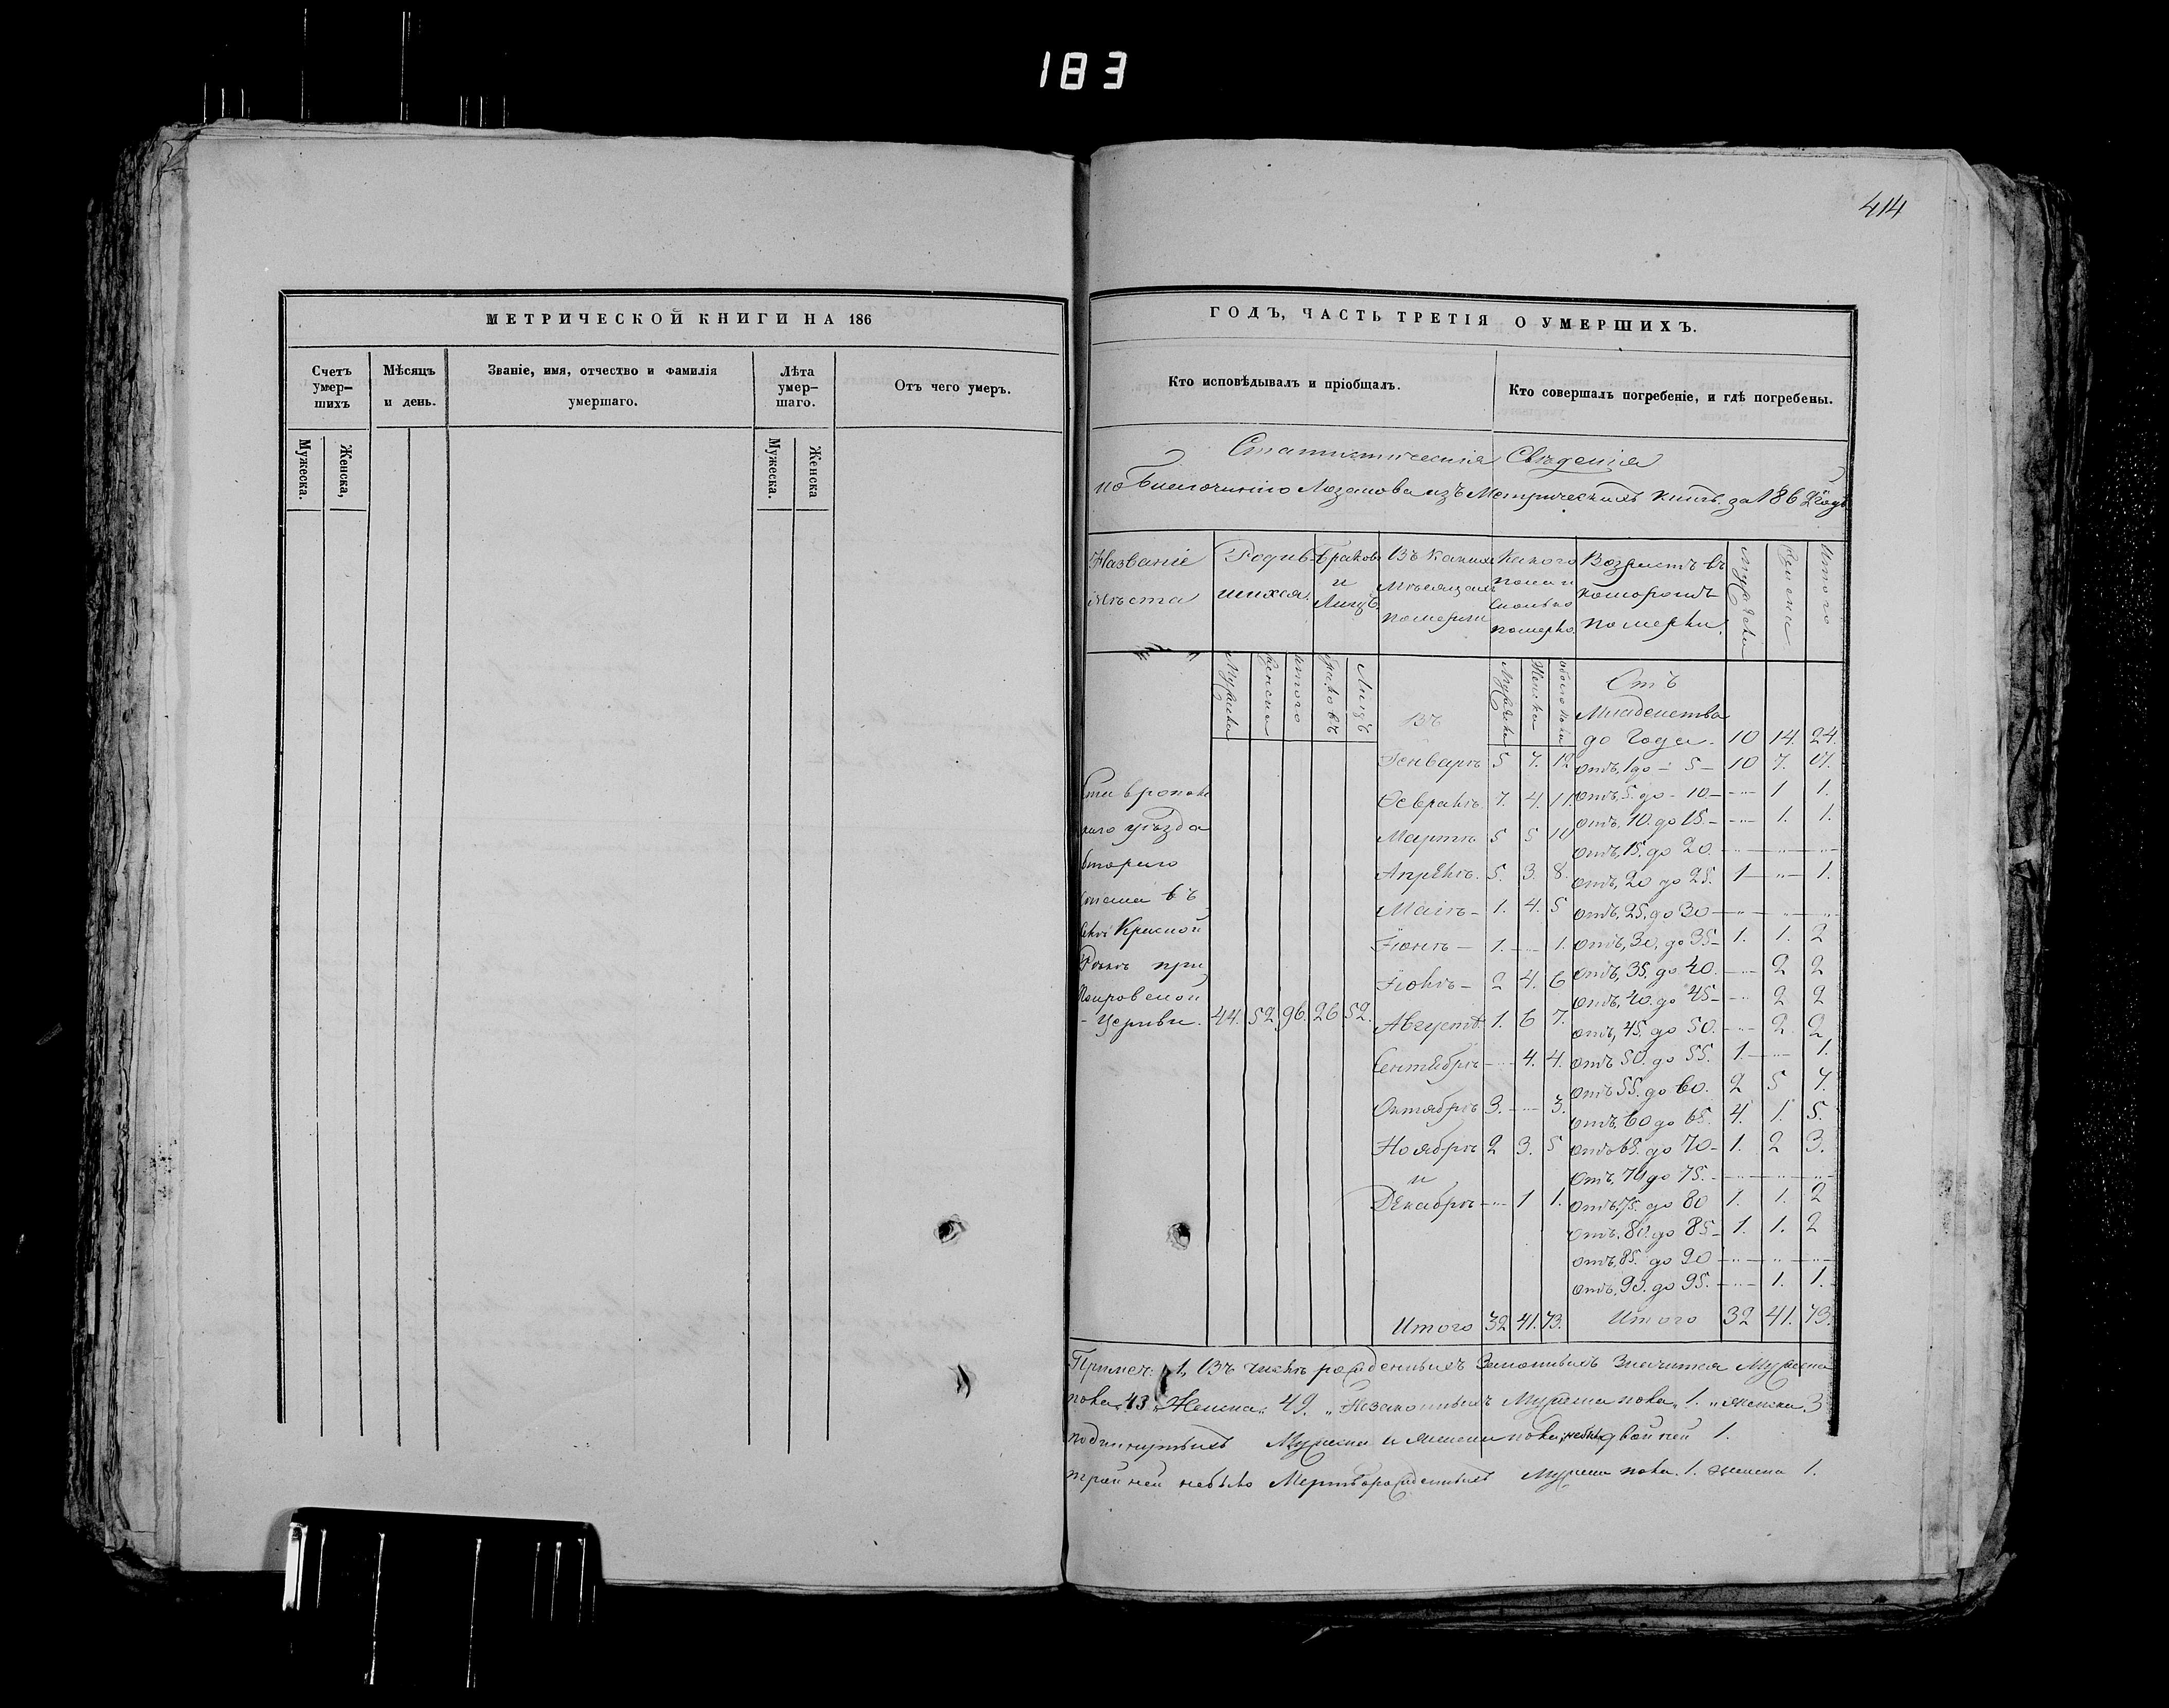 183
414
МЕТРИЧЕСКОЙ КНИГИ НА 186
Счетъ умер-шихъ
Мѣсяцъ и день.
Званіе, имя, отчество и фамилія умершаго.
Лѣта умер-шаго.
Отъ чего умеръ.
Мужеска.
Женска,
Мужеска.
Женска
ГОДЪ, ЧАСТЬ ТРЕТІЯ О УМЕРШИХЪ.
Кто исповѣдывалъ и пріобщалъ.
Кто совершалъ погребеніе, и гдѣ погребены.
Статистическія Свѣденія
по из Метрическихъ книгъ за 1862 годъ
Названіе мѣста
Родив-шихся.
Браковъ и Лицъ
Въ какихъ мѣсяцахъ померли
Какого пола и сколько померло.
Возрастъ въ которомъ померли.
Мужеска
Женска
Итого
Мужеска
Женска
Итого
Браковъ
Лицъ
Въ
Мужеска
Женска
Обоего пола
Отъ Младенства до года. 10 14. 24.
Ставропольскаго уѣзда втораго стана въ селѣ Красной Рѣкѣ при Покровской Церкви. 44. 52. 96. 26 52.
Генварѣ 5 7. 12
Февралѣ 7. 4. 11.
Мартѣ 5 5 10
Апрѣлѣ. 5. 3. 8.
Маіѣ - 1. 4. 5
Іюнѣ - 1. - 1.
Іюлѣ - 2 4. 6
Августѣ. 1. 6 7.
Сентябрѣ - 4. 4.
Октябрѣ 3. - 3.
Ноябрѣ 2 3. 5
и
Декабрѣ - 1 1.
Итого 32 41. 73.
отъ, 1 до - 5 - 10 7. 17.
отъ, 5. до - 10 - - 1 1.
отъ, 10. до 15. - - 1. 1.
отъ, 15. до 20. - - -
отъ, 20 до 25. 1 - 1.
отъ, 25. до 30 - - -
отъ, 30, до 35 - 1. 1. 2
отъ, 35. до 40. - 2 2
отъ, 40. до 45 - - 2 2
отъ, 45. до 50. - 2. 2
отъ 50. до 55. 1. - 1.
отъ 55. до 60. 2 5 7.
отъ, 60 до 65. 4. 1. 5.
отъ 65. до 70 - 1. 2 3.
отъ, 70 до 75. - - -
отъ, 75. до 80 1. 1. 2
отъ, 80. до 85 - 1. 1. 2
отъ, 85. до 90 - - -
отъ, 90. до 95. - 1. 1.
Итого 32 41. 73.
Примеч: 1, Въ числѣ рожденныхъ Законныхъ Значится Мужеска
пола 43 Женска 49. Незаконныхъ Мужеска пола 1. женска 3
подкинутыхъ Мужеска и женска пола небыло двойней 1.
тройней небыло Мертворожденныхъ Мужеска пола. 1. женска 1.